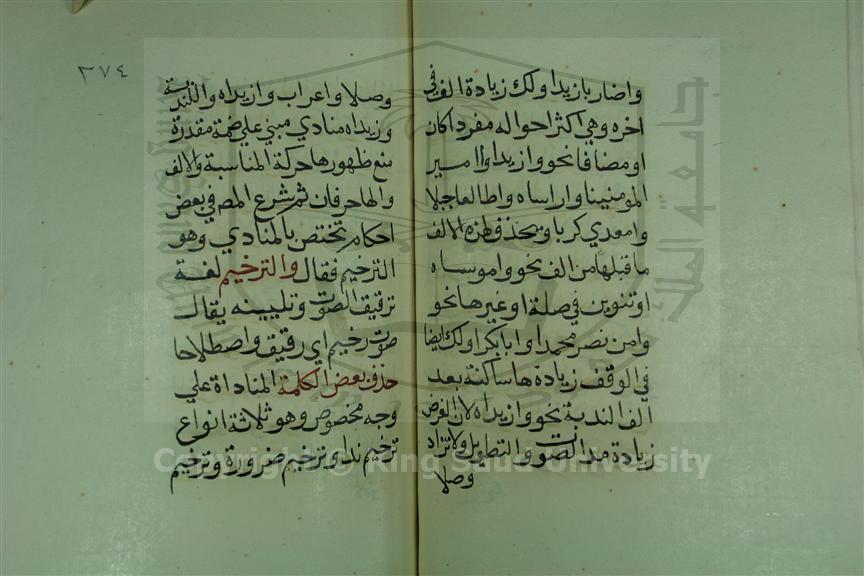 واضار بازيدا ولك زيادة الف في
اخره وهي اكثر احواله مفردا كان
او مضافا نحو وازيدا وا امير
المومنينا واراساه واطالعا جبلا
وامعدي كربا ويحذف لهذه الالف
ما قبلها من الف نحو واموساه
او تنوين في صلة او غيرها نحو
وامن نصر محمدا وابابكرا ولك ايضا
في الوقف زيادة ها ساكنة بعد
الف الندبة نحو وازيداه لان الغرض
زيادة مد الصوت والتطويل ولا تزاد
وصلا
٣٧٤
وصلا واعراب وازيداه وا للندبة
وزيداه منادي مبني علي ضمة مقدرة
منع ظهورها حركة المناسبة والالف
والها حرفان ثم شرع المص في بعض
احكام تختص بالمنادي وهو
الترخيم فقال والترخيم لغة
ترقيق الصوت وتليينه يقال
صوت رخيم اي رقيق واصطلاحا
حذف بعض الكلمة المناداة علي
وجه مخصوص وهو ثلاثة انواع
ترخيم ندا وترخيم ضرورة وترخيم
جامعة الملك سعود
Copyright © King Saud University